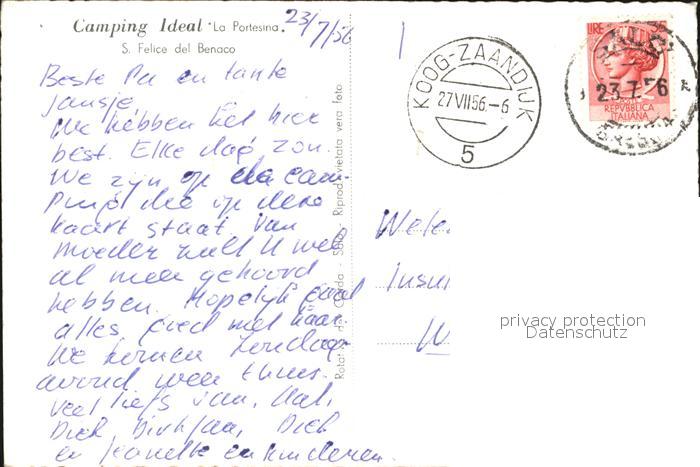 Camping Ideal "La Portesina"
S. Felice del Benaco
23/7/56
Beste Pa en tante
Jansje,
We hebben het hier
best. Elke dag zon.
We zijn op de cam-
ping die op deze
kaart staat. Van
moeder zult U wel
al meer gehoord
hebben. Hopelijk
alles goed met haar.
We komen Zondag-
avond weer thuis.
Veel liefs van,
Dick
en Jeanette en kinderen.
Riprod. vietata vera foto
KOOG-ZAANDIJK
27 VII 56.-6
5
LIRE
REPVBBLICA
ITALIANA
SALÒ
23.7.56
BRESCIA
privacy protection
Datenschutz